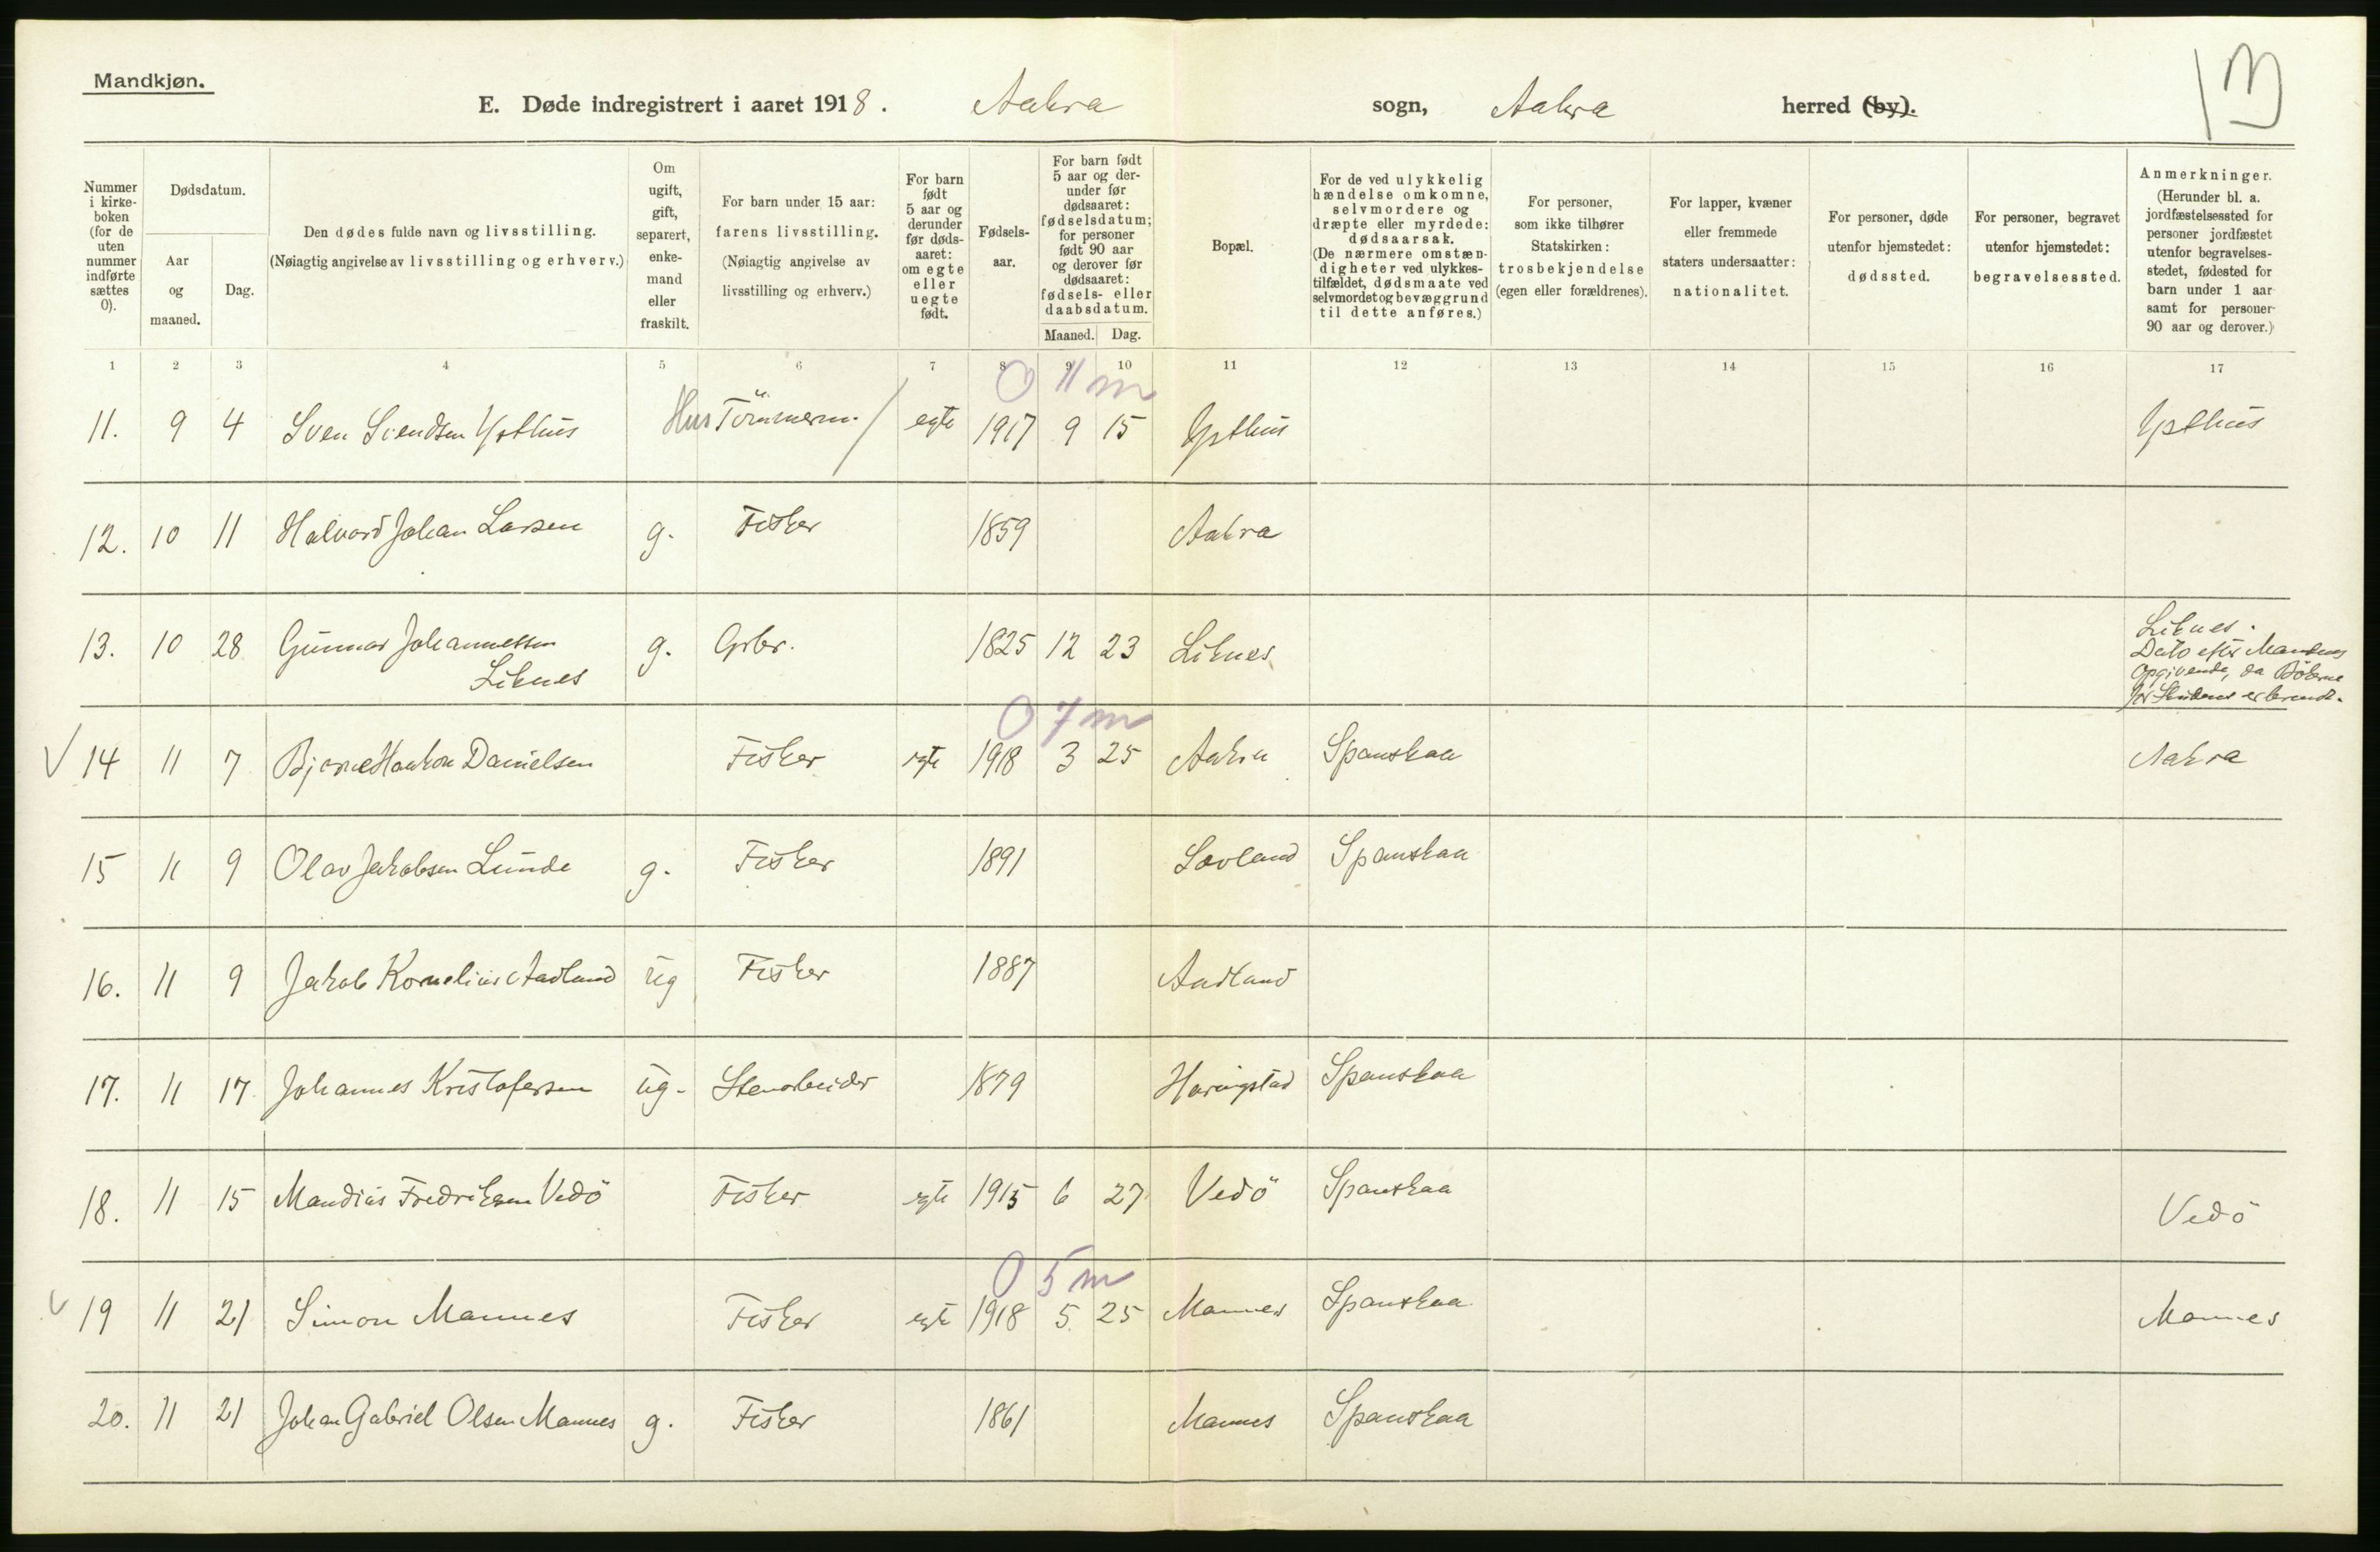 Mandkjøn.
E. Døde indregistrert i aaret 1918. Aakra sogn, Aakra herred (by).
13
Nummer i kirkeboken (for de uten nummer indførte sættes 0).
Dødsdatum.
Aar og maaned.
Dag.
Den dødes fulde navn og livsstilling.
(Nøiagtig angivelse av livsstilling og erhverv.)
Om ugift, gift, separert, enkemand eller fraskilt.
For barn under 15 aar: farens livsstilling.
(Nøiagtig angivelse av livsstilling og erhverv.)
For barn født 5 aar og derunder før dødsaaret: om egte eller uegte født.
Fødselsaar.
For barn født 5 aar og derunder før dødsaaret: fødselsdatum; for personer født 90 aar og derover før dødsaaret: fødsels- eller daabsdatum.
Maaned. Dag.
Bopæl.
For de ved ulykkelig hændelse omkomne, selvmordere og dræpte eller myrdede: dødsaarsak.
(De nærmere omstændigheter ved ulykkestilfældet, dødsmaate ved selvmordet og bevæggrund til dette anføres.)
For personer, som ikke tilhører Statskirken: trosbekjendelse (egen eller forældrenes).
For lapper, kvæner eller fremmede staters undersaatter: nationalitet.
For personer, døde utenfor hjemstedet: dødssted.
For personer, begravet utenfor hjemstedet: begravelsessted.
Anmerkninger.
(Herunder bl. a. jordfæstelsessted for personer jordfæstet utenfor begravelsesstedet, fødested for barn under 1 aar samt for personer 90 aar og derover.)
1 2 3 4 5 6 7 8 9 10 11 12 13 14 15 16 17
0 11 m
11. 9 4 Sven Svendsen Ysthus Hus Tömmerm. / egte 1917 9 15 Ysthus Ysthus
12. 10 11 Halvard Johan Larsen g. Fisker 1859 Aakra
13. 10 28 Gunnar Johannessen Liknes g. Grbr. 1825 12 23 Liknes Liknes.
Dato efter Mandens
Opgivende, da Bökerne
for Skudenes er brændt.
0 7 m
14 11 7 Bjarne Haakon Danielsen Fisker egte 1918 3 25 Aakra Spanskaa Aakra
15 11 9 Olav Jakobsen Lunde g. Fisker 1891 Sævland Spanskaa
16. 11 9 Jakob Kornelius Aadland ug Fisker 1887 Aadland
17. 11 17 Johannes Kristofersen ug. Stenarbeider 1879 Haringstad Spanskaa
18. 11 15 Mandius Fredriksen Vedö Fisker egte 1915 6 27 Vedö Spanskaa Vedö
0 5 m
19 11 21 Simon Mannes Fisker egte 1918 5 25 Mannes Spanskaa Mannes
20. 11 21 Johan Gabriel Olsen Mannes g. Fisker 1861 Mannes Spanskaa